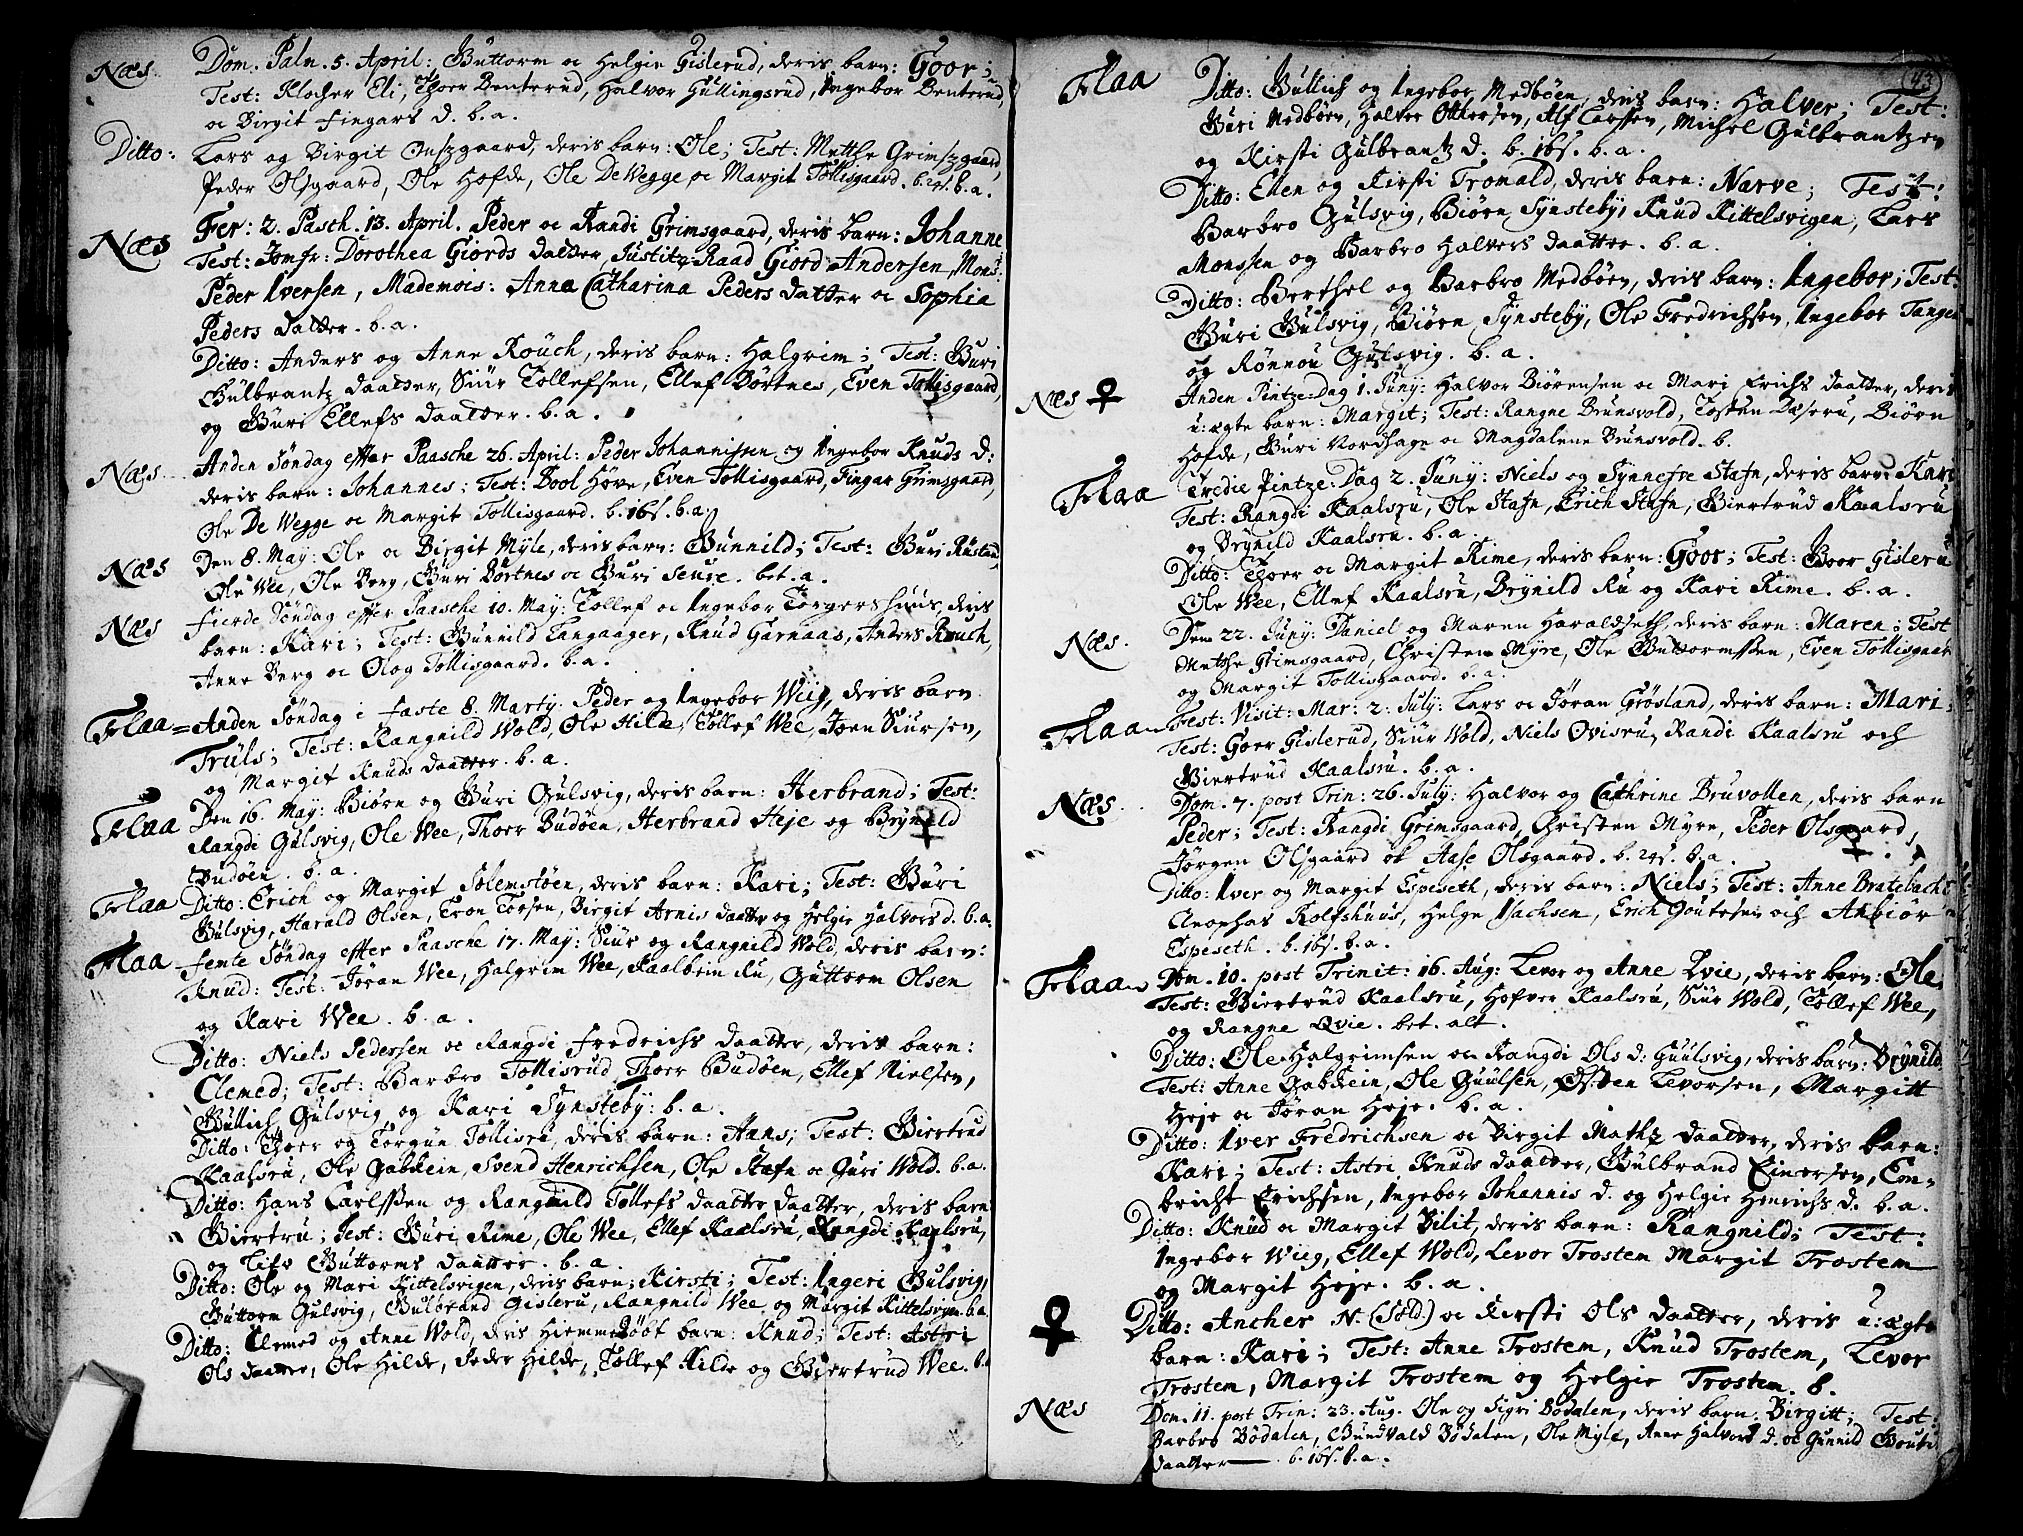 Næs. Dom. Palm. 5. April: Guttorm oc Helgie Gislerud, deris barn: Goor;
Test: Klocher Eli, Thoer Benterud, Halvor Gullingsrud, Ingebor Benterud,
oc Birgit Fingars d. b. a.
Ditto: Lars og Birgit Onszgaard, deris barn: Ole; Test: Mætthe Grimszgaard,
Peder Olsgaard, Ole Hofde, Ole De Wegge oc Margit Tollisgaard. b. 24s. b. a.
Næs Fer: 2. Pasch. 13. April. Peder oc Randi Grimsgaard, deris barn: Johanne
Test: Jomfr: Dorothea Giords datter, Justitz-Raad Giord Andersen, Mons:
Peder Iversen, Mademois: Anna Catharina Peders datter oc Sophia
Peders datter. b. a.
Ditto: Anders og Anne Rouch, deris barn: Halgrim; Test: Guri
Gulbrantz daatter, Siur Tollefsen, Ellef Børtnes, Even Tollisgaard,
og Guri Ellefs daatter. b. a.
Næs Anden Søndag effter Paasche 26. April: Peder Johannissen og Ingebor Knuds d:
deris barn: Johannes; Test: Bool Hove, Even Tollisgaard, Fingar Grimsgaard,
Ole De Wegge oc Margit Tollisgaard. b. 16s. b. a.
Næs Den 8. May: Ole oc Birgit Myle, deris barn: Gunnild; Test: Guri Rustand,
Ole Wee, Ole Berg, Guri Børtnes oc Guri Seuse. bet. a.
Næs Fierde Søndag effter Paasche 10. May: Tollef oc Ingebor Torgershuus, deris
barn: Kari; Test: Gunnild Langaager, Knud Garnaas, Anders Rouch,
Anne Berg oc Olog Tollisgaard. b. a.
Flaa = Anden Søndag i faste 8. Marty. Peder og Ingebor Wiig, deris barn
Truls; Test: Rangnild Wold, Ole Hilde, Tollef Wee, Joen Siursen,
og Margit Knuds daatter. b. a.
Flaa Den 16. May: Biørn og Guri Gulsvig, deris barn: Herbrand; Test:
Rangdi Gulsvig, Ole Wee, Thoer Budøen, Herbrand Heje og Brynild
Budøen. b. a.
Flaa Ditto: Erich og Margit Solemstøen, deris barn: Kari; Test: Guri
Gulsvig, Harald Olsen, Tron Torsen, Birgit Arnis daatter og Helgie Halvors d. b. a.
Flaa femte Søndag effter Paasche 17. May: Siur og Rangnild Wold, deris barn:
Knud: Test: Jøran Wee, Halgrim Wee, Kaalbein Ru, Guttorm Olsen
og Kari Wee. b. a.
Ditto: Niels Pedersen oc Rangdi Fredrichs daatter, deris barn:
Clemed; Test: Barbro Tollisrud, Thoer Budøen, Ellef Nielsen,
Gullich Gulsvig og Kari Synsteby: b. a.
Ditto: Thoer og Torgun Tollisru, deris barn: Anns; Test: Giertrud
Kaalsru, Ole Gabkein, Svend Henrichsen, Ole Stafn oc Guri Wold. b. a.
Ditto: Hans Carlssen og Rangnild Tollefs daatter daatter, deris barn
Giertru; Test: Guri Rime, Ole Wee, Ellef Kaalsru, Rangdi Kaalsru,
og Lifv Guttorms daatter. b. a.
Ditto: Ole og Mari Kittelsvigen, deris barn: Kirsti; Test: Ingeri Gulsvig,
Guttorm Gulsvig, Gulbrand Gisleru, Rangnild Wee, og Margit Kittelsvigen. b. a.
Ditto: Clemed og Anne Wold, deris Hiemmedøbt barn: Knud; Test: Astri
Ols daatter, Ole Hilde, Peder Hilde, Tollef Hilde og Giertrud Wee. b. a
43
Flaa Ditto: Gullich og Ingebor Medbøen, deris barn: Halver; Test:
Guri Medbøen, Halver Ottersen, Alf Larssen, Michel Gulbrantzen
og Kirsti Gulbrantz d. b. 16s. b. a.
Ditto: Ellen og Kirsti Tromald, deris barn: Narve; Test:
Barbro Gulsvig, Biørn Synsteby, Knud Kittelsvigen, Lars
Monssen og Barbro Halvers daatter. b. a.
Ditto: Berthel og Barbro Medbøen, deris barn: Ingebor; Test:
Guri Gulsvig, Biørn Synsteby, Ole Fredrichsen, Ingebor Tangen
og Rønnou Gulsvig. b. a.
Næs ♀ Anden Pintze-Dag 1. Juny: Halvor Biørensen oc Mari Erichs daatter, deris
u:ægte barn: Margit; Test: Rangne Brunsvold, Tosten Dæseru, Biørn
Hofde, Guri Nordhage oc Magdalene Brunsvold. b.
Flaa Tredie Pintze-Dag 2. Juny: Niels og Synnefve Stafn, deris barn: Kari
Test: Rangdi Kaalsru, Ole Stafn, Erich Stafn, Giertrud Kaalsru
og Brynild Kaalsru. b. a.
Ditto: Thoer oc Margit Rime, deris barn: Goor; Test: Goor Gisleru
Ole Wee, Ellef Kaalsru, Brynild Ru og Kari Rime. b. a.
Næs. Den 22. Juny: Daniel og Maren Haraldseth, deris barn: Maren; Test
Mætthe Grimsgaard, Christen Myre, Ole Guttormssen, Even Tollisgaard
og Margit Tollisgaard. b. a.
Flaa Fest: Visit: Mar: 2. July: Lars oc Jøran Grøsland, deris barn: Mari;
Test: Goer Gislerud, Siur Wold, Niels Qvisru, Randi Kaalsru och
Giertrud Kaalsru. b. a.
Næs. Dom. 7. post Trin: 26. July: Halvor og Cathrine Bruvollen, deris barn
Peder; Test: Rangdi Grimsgaard, Christen Myre, Peder Olsgaard,
Jørgen Olsgaard ok Aase Olsgaard. b. 24s. b. a.
Ditto: Iver og Margit Espeseth, deris barn: Niels; Test: Anne Bratebach
Cleophas Rolfshuus, Helge Isachsen, Erich Goutesen och Anbiør
Espeseth. b. 16s. b. a.
Flaa Dom. 10. post Trinit: 16. Aug: Levor og Anne Qvie, deris barn: Ole
Test: Giertrud Kaalsru, Hofver Kaalsru, Siur Wold, Tollef Wee,
og Rangne Qvie. bet. alt.
Ditto: Ole Halgrimsen oc Rangdi Ols d: Guulsvig, deris barn: Brynild
Test: Anne Gabkein, Ole Guulsen, Østen Levorsen, Margitt
Heje oc Jøran Heje. b. a.
Ditto: Iver Fredrichsen oc Birgit Mathz daatter, deris barn:
Kari; Test: Astri Knuds daatter, Gulbrand Einersen, Em-
bricht Erichsen, Ingebor Johannis d. og Helgie Henrichs d. b. a.
Ditto: Knud oc Margit Bilit, deris barn: Rangnild; Test:
Ingebor Wiig, Ellef Wold, Levor Trostem Margit Trostem
og Margit Heje. b. a.
♀ Ditto: Ancher N. (Sold.) oc Kirsti Ols daatter, deris u:ægte
barn: Kari; Test: Anne Trostem, Knud Trostem, Levor
Trostem, Margit Trostem og Helgie Trostem. b.
Næs Dom. 11. post Trin: 23. Aug. Ole og Sigri Bødalen, deris barn: Birgitt; Test:
Barbro Bødalen, Gundvald Bødalen, Ole Myle, Anne Halvors d. oc Gunnild
daatter b. 16s. b. a.